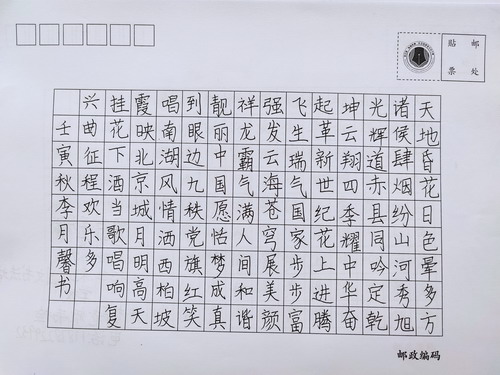 贴邮
票处
天地昏花日色晕多方
诸侯肆烟纷山河秀旭
光辉道赤县同吟定乾
坤云翔四季耀中华奋
起革新世纪花上进腾
飞生瑞气国家步步富
强发云海苍穹展美颜
祥龙霸气满人间和谐
靓丽中国愿怡梦成真
到眼边九秩党旗红笑
唱南湖风情洒西柏坡
霞映北京城月明高天
挂花下酒当歌唱响复
兴曲征程欢乐多
壬寅秋李月馨书
邮政编码